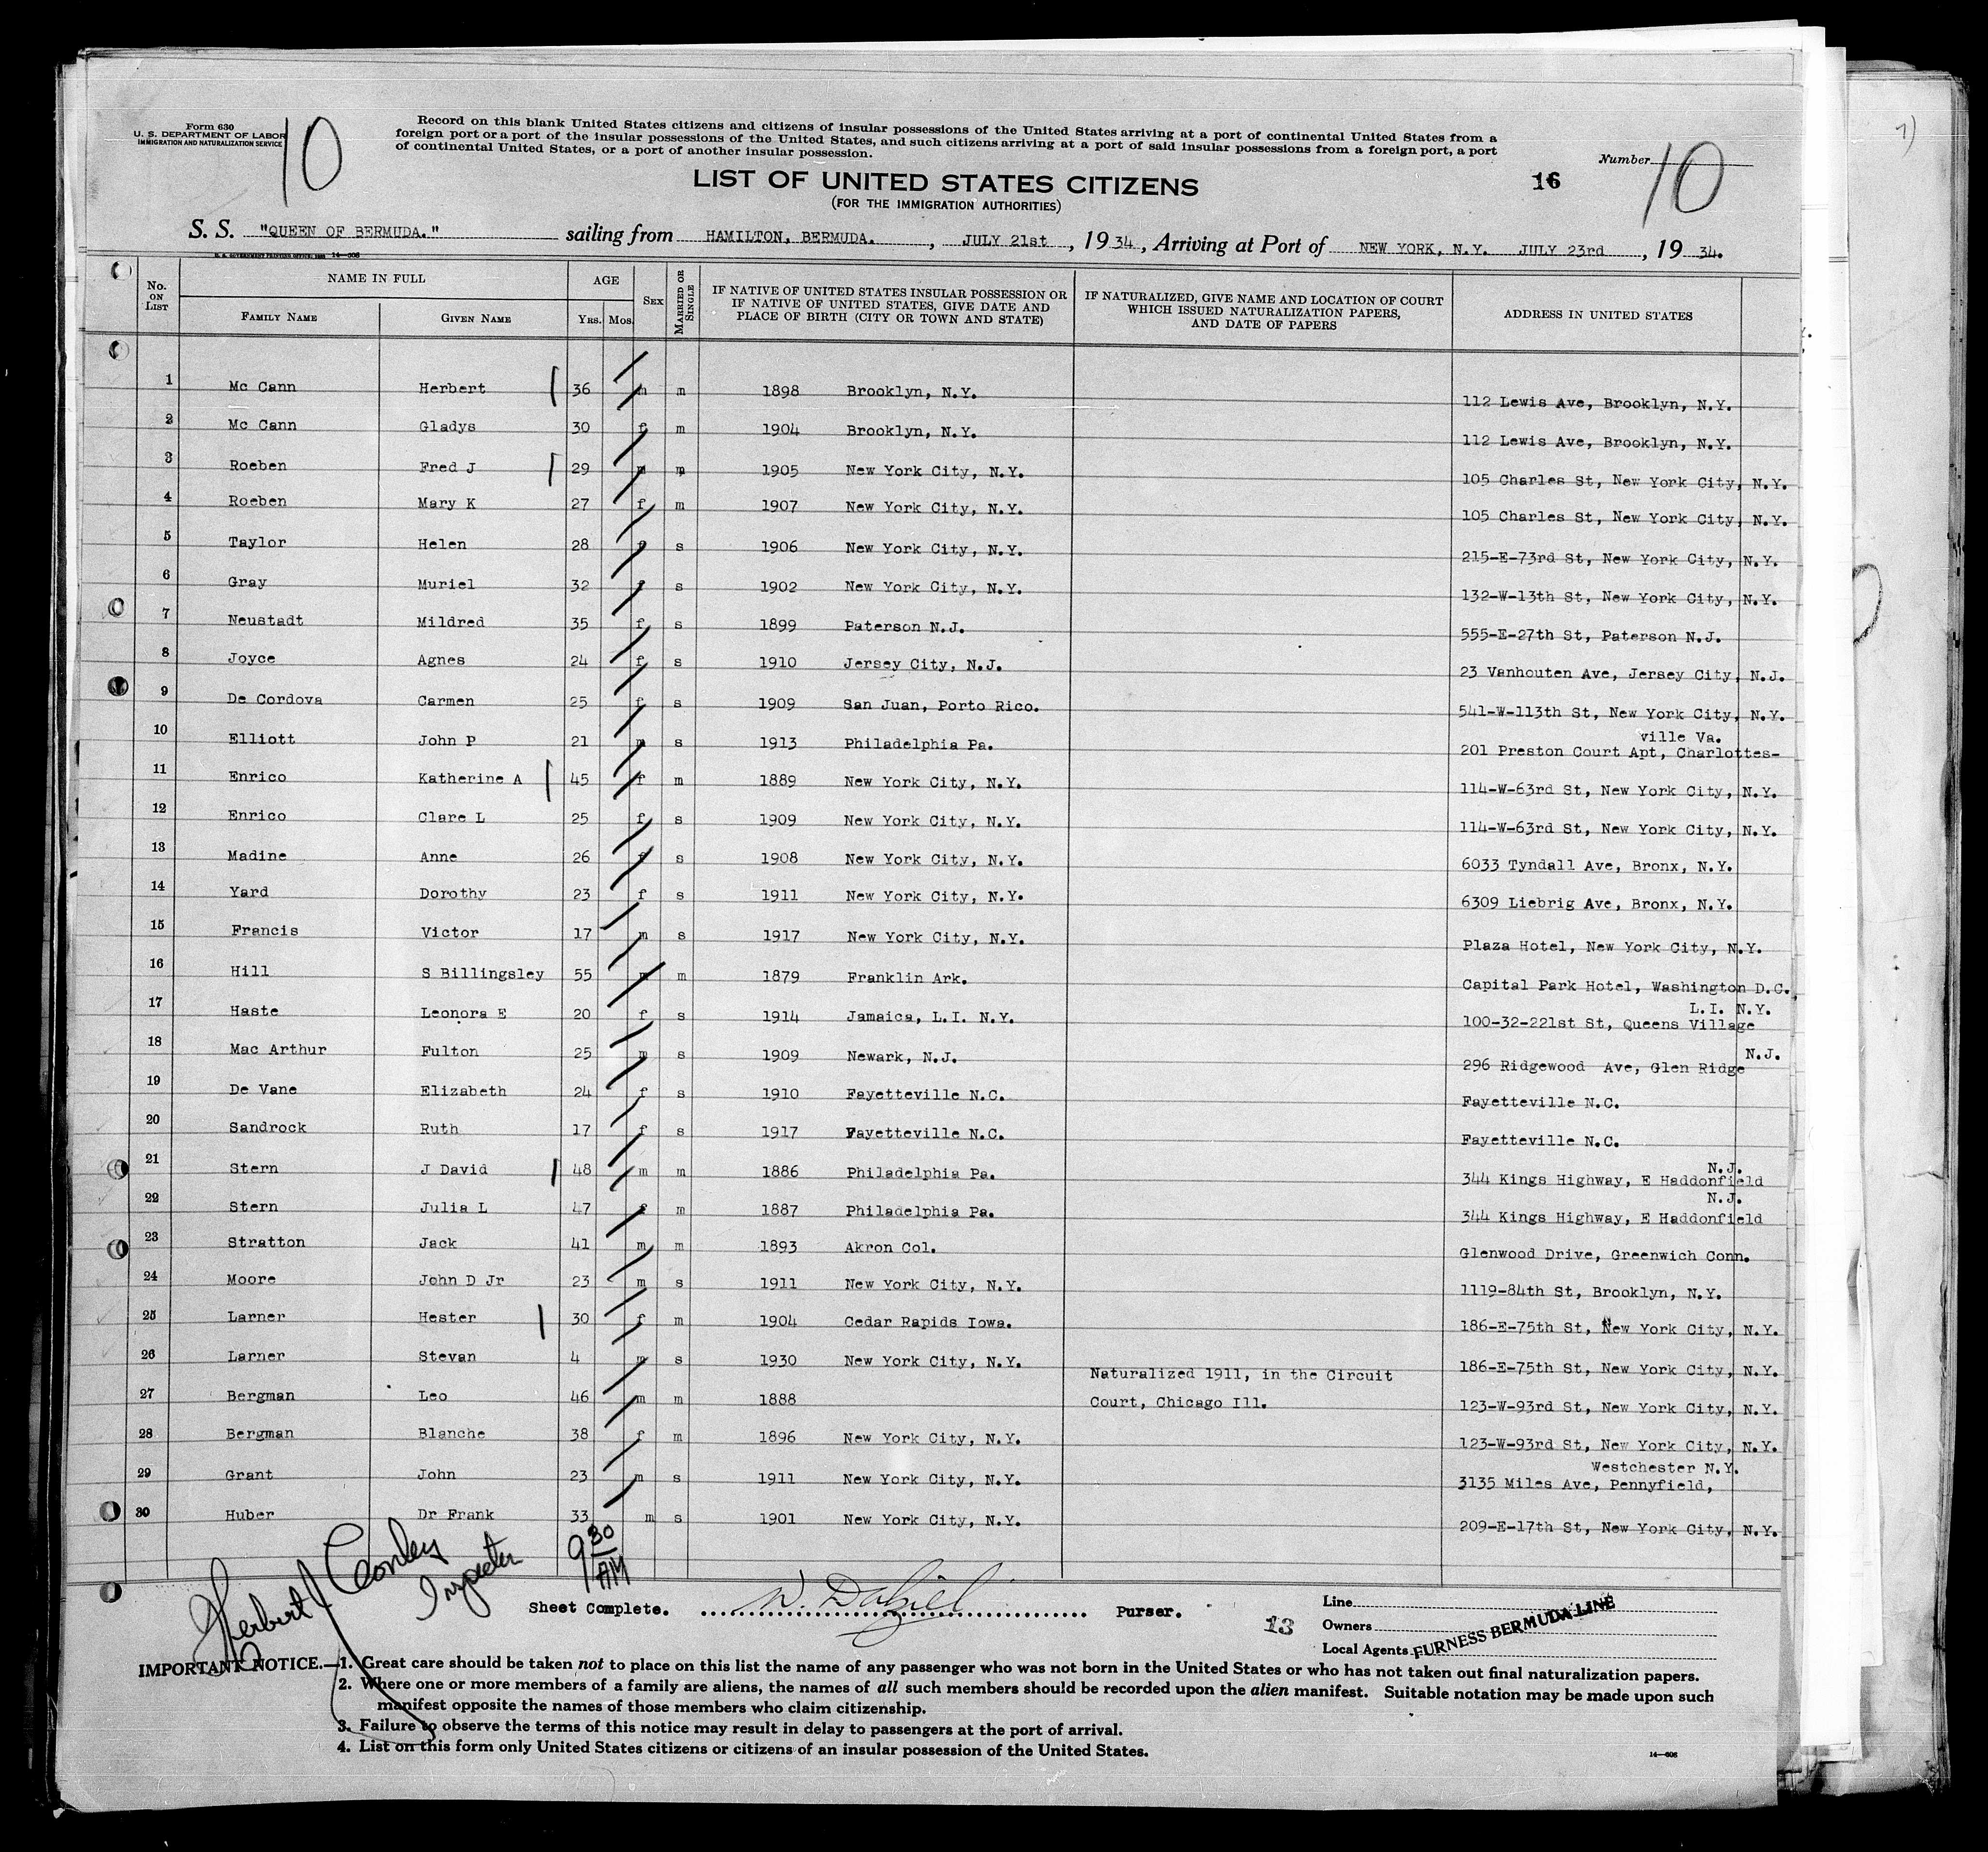 Form 630
U. S. DEPARTMENT OF LABOR
IMMIGRATION AND NATURALIZATION SERVICE
10
Record on this blank United States citizens and citizens of insular possessions of the United States arriving at a port of continental United States from a
foreign port or a port of the insular possessions of the United States, and such citizens arriving at a port of said insular possessions from a foreign port, a port
of continental United States, or a port of another insular possession.
Number 10
LIST OF UNITED STATES CITIZENS
16
(FOR THE IMMIGRATION AUTHORITIES)
S. S. "QUEEN OF BERMUDA." sailing from HAMILTON, BERMUDA. , JULY 21st , 19 34 , Arriving at Port of NEW YORK, N.Y. JULY 23rd , 19 34.
14—608
No. ON LIST NAME IN FULL FAMILY NAME GIVEN NAME AGE YRS. MOS. SEX MARRIED OR SINGLE IF NATIVE OF UNITED STATES INSULAR POSSESSION OR IF NATIVE OF UNITED STATES, GIVE DATE AND PLACE OF BIRTH (CITY OR TOWN AND STATE) IF NATURALIZED, GIVE NAME AND LOCATION OF COURT WHICH ISSUED NATURALIZATION PAPERS, AND DATE OF PAPERS ADDRESS IN UNITED STATES
1 Mc Cann Herbert 36 m m 1898 Brooklyn, N.Y. 112 Lewis Ave, Brooklyn, N.Y.
2 Mc Cann Gladys 30 f m 1904 Brooklyn, N.Y. 112 Lewis Ave, Brooklyn, N.Y.
3 Roeben Fred J 29 m m 1905 New York City, N.Y. 105 Charles St, New York City, N.Y.
4 Roeben Mary K 27 f m 1907 New York City, N.Y. 105 Charles St, New York City, N.Y.
5 Taylor Helen 28 f s 1906 New York City, N.Y. 215-E-73rd St, New York City, N.Y.
6 Gray Muriel 32 f s 1902 New York City, N.Y. 132-W-13th St, New York City, N.Y.
7 Neustadt Mildred 35 f s 1899 Paterson N.J. 555-E-27th St, Paterson N.J.
8 Joyce Agnes 24 f s 1910 Jersey City, N.J. 23 Vanhouten Ave, Jersey City, N.J.
9 De Cordova Carmen 25 f s 1909 San Juan, Porto Rico. 541-W-113th St, New York City, N.Y.
10 Elliott John P 21 m s 1913 Philadelphia Pa. 201 Preston Court Apt, Charlottes-ville Va.
11 Enrico Katherine A 45 f m 1889 New York City, N.Y. 114-W-63rd St, New York City, N.Y.
12 Enrico Clare L 25 f s 1909 New York City, N.Y. 114-W-63rd St, New York City, N.Y.
13 Madine Anne 26 f s 1908 New York City, N.Y. 6033 Tyndall Ave, Bronx, N.Y.
14 Yard Dorothy 23 f s 1911 New York City, N.Y. 6309 Liebrig Ave, Bronx, N.Y.
15 Francis Victor 17 m s 1917 New York City, N.Y. Plaza Hotel, New York City, N.Y.
16 Hill S Billingsley 55 m m 1879 Franklin Ark. Capital Park Hotel, Washington D.C.
17 Haste Leonora E 20 f s 1914 Jamaica, L.I. N.Y. 100-32-221st St, Queens Village L.I. N.Y.
18 Mac Arthur Fulton 25 m s 1909 Newark, N.J. 296 Ridgewood Ave, Glen Ridge N.J.
19 De Vane Elizabeth 24 f s 1910 Fayetteville N.C. Fayetteville N.C.
20 Sandrock Ruth 17 f s 1917 Fayetteville N.C. Fayetteville N.C.
21 Stern J David 48 m m 1886 Philadelphia Pa. 344 Kings Highway, E Haddonfield N.J.
22 Stern Julia L 47 f m 1887 Philadelphia Pa. 344 Kings Highway, E Haddonfield N.J.
23 Stratton Jack 41 m m 1893 Akron Col. Glenwood Drive, Greenwich Conn.
24 Moore John D Jr 23 m s 1911 New York City, N.Y. 1119-84th St, Brooklyn, N.Y.
25 Larner Hester 30 f m 1904 Cedar Rapids Iowa. 186-E-75th St, New York City, N.Y.
26 Larner Stevan 4 m s 1930 New York City, N.Y. 186-E-75th St, New York City, N.Y.
27 Bergman Leo 46 m m 1888 Naturalized 1911, in the Circuit Court, Chicago Ill. 123-W-93rd St, New York City, N.Y.
28 Bergman Blanche 38 f m 1896 New York City, N.Y. 123-W-93rd St, New York City, N.Y.
29 Grant John 23 m s 1911 New York City, N.Y. 3135 Miles Ave, Pennyfield, Westchester N.Y.
30 Huber Dr Frank 33 m s 1901 New York City, N.Y. 209-E-17th St, New York City, N.Y.
Herbert J Conley
Inspector
9 30 AM
Sheet Complete. W. Dalziel Purser.
13
Line
Owners
Local Agents FURNESS BERMUDA LINE
IMPORTANT NOTICE.—1. Great care should be taken not to place on this list the name of any passenger who was not born in the United States or who has not taken out final naturalization papers.
2. Where one or more members of a family are aliens, the names of all such members should be recorded upon the alien manifest. Suitable notation may be made upon such
manifest opposite the names of those members who claim citizenship.
3. Failure to observe the terms of this notice may result in delay to passengers at the port of arrival.
4. List on this form only United States citizens or citizens of an insular possession of the United States.
14—608